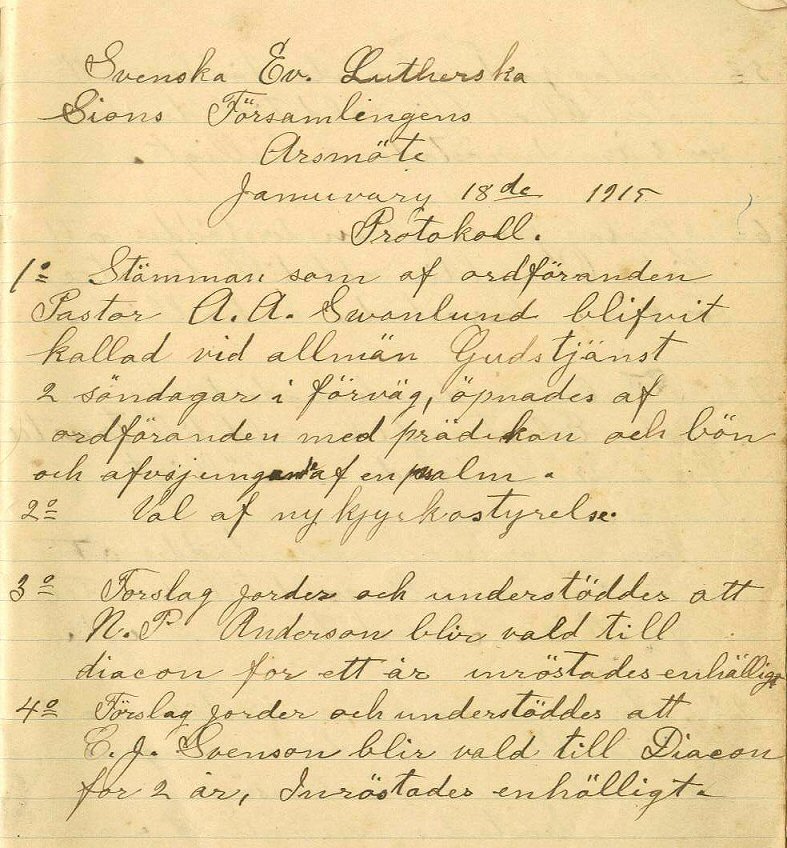 Svenska Ev. Lutherska
Sions Församlingens
Arsmöte
Januvary 18de 1915
Protokoll.
1o Stämman som af ordföranden
Pastor A. A. Swanlund blifvit
kallad vid allmän Gudstjänst
2 söndagar i förväg, öpnades af
ordföranden med prädikan och bön
och afvsjungande af en psalm.
2o Val af ny kjyrkostyrelse.
3o Forslag jordes och understöddes att
N. P. Anderson blir vald till
diacon for ett år inröstades enhälligt
4o Förslag jordes och understöddes att
E. J. Svenson blir vald till Diacon
for 2 år, Inröstades enhälligt.